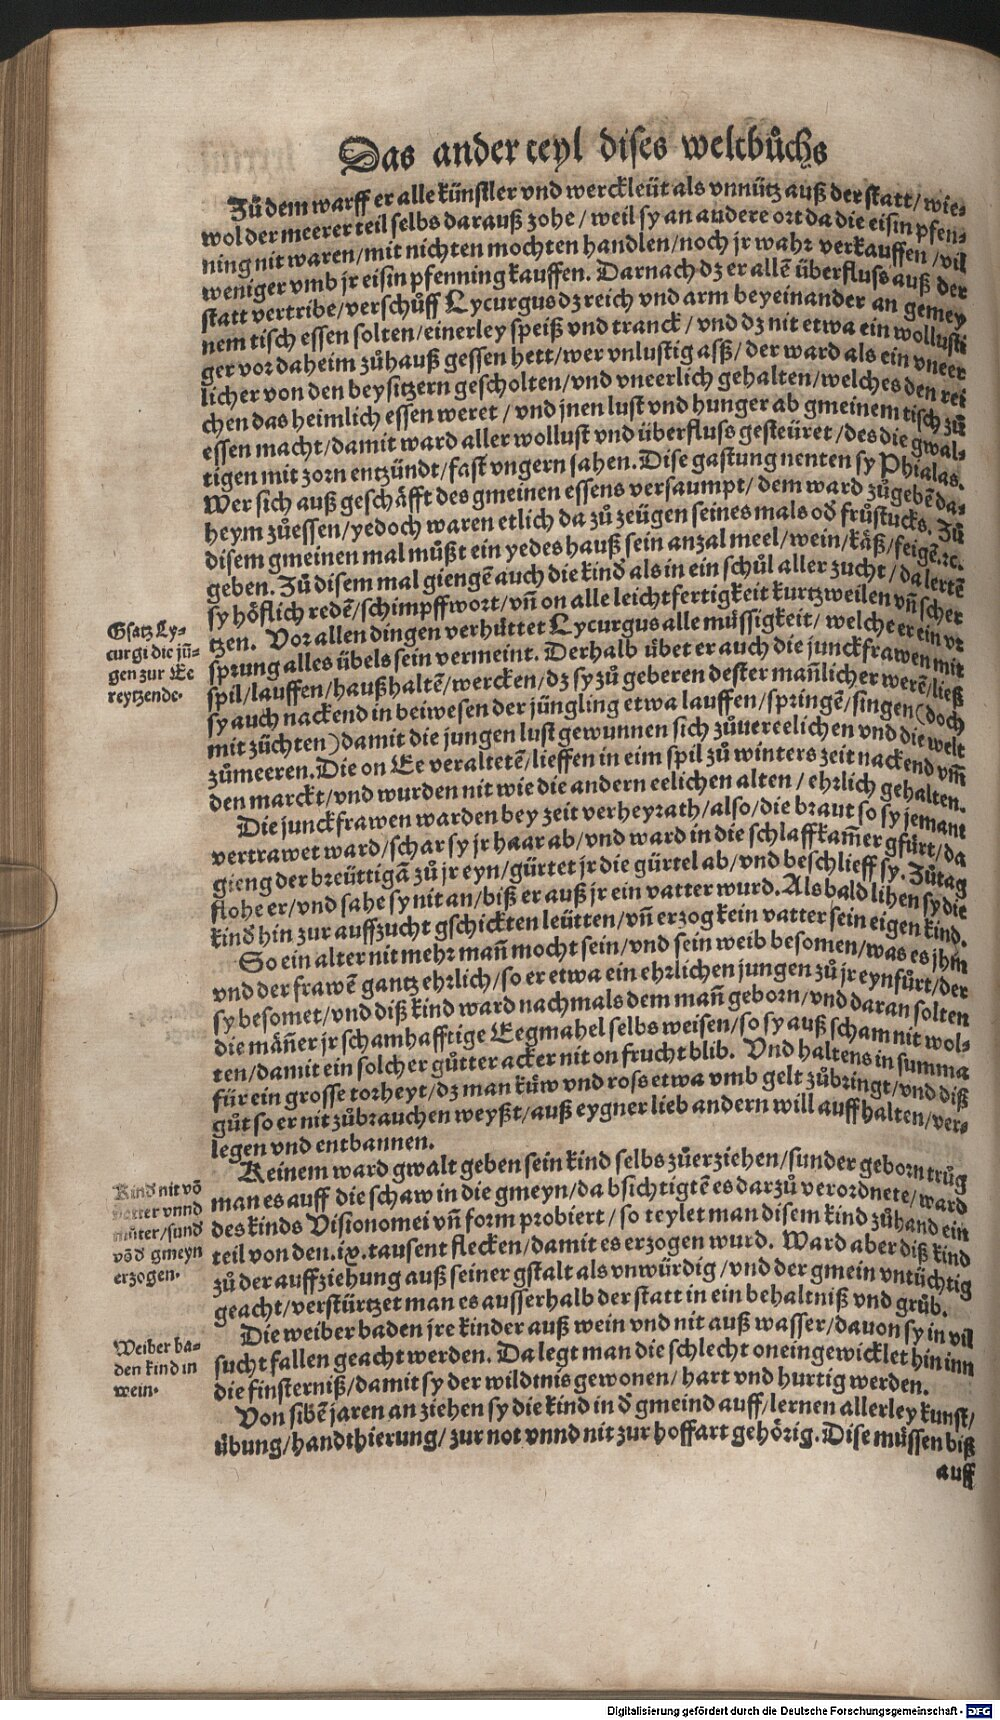 Das ander teyl dises weltbůchs
Zů dem warff er alle künstler vnd werckleüt als vnnütz auß der statt/ wie⸗
wol der meerer teil selbs darauß zohe/ weil sy an andere ort da die eisin pfen⸗
ning nit waren/mit nichten mochten handlen/noch jr wahr verkauffen /vil
weniger vmb jr eisin pfenning kauffen. Darnach dz er allē überfluss auß der
statt vertribe/verschůff Lycurgus dz reich vnd arm beyeinander an gemey
nem tisch essen solten/einerley speiß vnd tranck/ vnd dz nit etwa ein wollusti
ger vor daheim zůhauß gessen hett/wer vnlustig asß/ der ward als ein vneer
licher von den beysitzern gescholten/vnd vneerlich gehalten/welches den rei
chen das heimlich essen weret / vnd jnen lust vnd hunger ab gmeinem tisch zů
essen macht/damit ward aller wollust vnd überfluss gesteüret /des die gwal⸗
tigen mit zorn entzündt/fast vngern sahen. Dise gastung nenten sy Phialas.
Wer sich auß geschäfft des gmeinen essens versaumpt/ dem ward zůgebē da⸗
heym zůessen/yedoch waren etlich da zů zeügen seines mals od̄ frůstucks. Zů
disem gmeinen mal můßt ein yedes hauß sein anzal meel/wein/käß/feigē.ꝛc.
geben. Zů disem mal giengē auch die kind als in ein schůl aller zucht/ da lertē
sy höflich redē/schimpffwort/vñ on alle leichtfertigkeit kurtzweilen vñ scher
tzen. Vor allen dingen verhüttet Lycurgus alle müssigkeit/ welche er ein vr
sprung alles übels sein vermeint. Derhalb übet er auch die junckfrawen mit
spil/lauffen/haußhaltē/wercken/dz sy zů geberen dester mañlicher werē/ließ
sy auch nackend in beiwesen der jüngling etwa lauffen/springē/singen (doch
mit züchten) damit die jungen lust gewunnen sich zůuereelichen vnd die welt
zůmeeren. Die on Ee veraltetē/lieffen in eim spil zů winters zeit nackend vm̄
den marckt/vnd wurden nit wie die andern eelichen alten / ehrlich gehalten.
Die junckfrawen warden bey zeit verheyrath/also/die braut so sy jemant
vertrawet ward/schar sy jr haar ab/vnd ward in die schlaffkam̄er gfürt/da
gieng der breüttigā zů jr eyn/gürtet jr die gürtel ab/vnd beschlieff sy. Zůtag
flohe er/vnd sahe sy nit an/biß er auß jr ein vatter wurd. Als bald lihen sy die
kind hin zur auffzucht gschickten leütten/vñ erzog kein vatter sein eigen kind.
So ein alter nit mehr mañ mocht sein/vnd sein weib besomen/was es jhm
vnd der frawē gantz ehrlich/so er etwa ein ehrlichen jungen zů jr eynfürt/der
sy besomet/vnd diß kind ward nachmals dem mañ geborn/vnd daran solten
die mäñer jr schamhafftige Eegmahel selbs weisen/so sy auß scham nit wol⸗
ten/damit ein solcher gůtter acker nit on frucht blib. Vnd haltens in summa
für ein grosse torheyt/dz man küw vnd ross etwa vmb gelt zůbringt/vnd diß
gůt so er nit zůbrauchen weyßt/auß eygner lieb andern will auffhalten/ver⸗
legen vnd entbannen.
Keinem ward gwalt geben sein kind selbs zůerziehen/sunder geborn trůg
man es auff die schaw in die gmeyn/da bsichtigtē es darzů verordnete/ward
des kinds Visionomei vñ form probiert/ so teylet man disem kind zůhand ein
teil von den.ix.tausent flecken/damit es erzogen wurd. Ward aber diß kind
zů der auffziehung auß seiner gstalt als vnwürdig /vnd der gmein vntüchtig
geacht/verstürtzet man es ausserhalb der statt in ein behaltniß vnd grůb.
Die weiber baden jre kinder auß wein vnd nit auß wasser/dauon sy in vil
sucht fallen geacht werden. Da legt man die schlecht on eingewicklet hin inn
die finsterniß/damit sy der wildtnis gewonen/ hart vnd hurtig werden.
Von sibē jaren an ziehen sy die kind in d̄ gmeind auff/lernen allerley kunst/
übung/handthierung/ zur not vnnd nit zur hoffart gehörig. Dise müssen biß
auff
Gsatz Ly⸗
curgi die jū⸗
gen zur Ee
reytzende.
Kind nit vō
vatter vnnd
můter/sund
vō d̄ gmeyn
erzogen.
Weiber ba⸗
den kind in
wein.
Digitalisierung gefördert durch die Deutsche Forschungsgemeinschaft - DFG